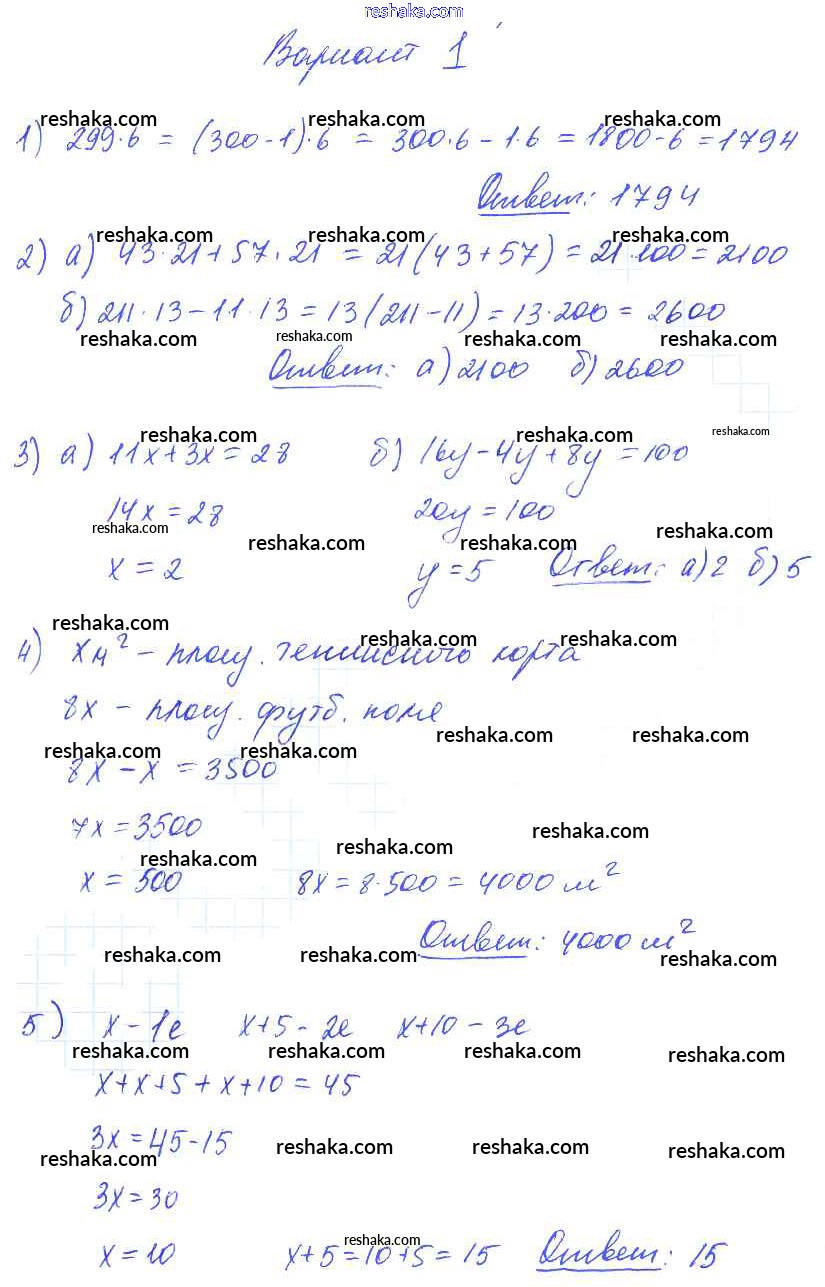 reshaka.com
Вариант 1
reshaka.com reshaka.com reshaka.com
1) 299·6 = (300-1)·6 = 300·6 - 1·6 = 1800-6 = 1794
Ответ: 1794
reshaka.com reshaka.com reshaka.com
2) а) 43·21+57·21 = 21(43+57) = 21·100 = 2100
б) 211·13-11·13 = 13(211-11) = 13·200 = 2600
reshaka.com reshaka.com reshaka.com reshaka.com
Ответ: а) 2100 б) 2600
reshaka.com reshaka.com reshaka.com
3) а) 11x+3x = 28 б) 16y-4y+8y = 100
14x = 28 20y = 100
reshaka.com reshaka.com reshaka.com reshaka.com
x = 2 y = 5 Ответ: а) 2 б) 5
reshaka.com reshaka.com reshaka.com
4) xм² - площ. теннисного корта
8x - площ. футб. поле
reshaka.com reshaka.com reshaka.com reshaka.com
8x - x = 3500
7x = 3500
reshaka.com reshaka.com reshaka.com
x = 500 8x = 8·500 = 4000 м²
Ответ: 4000 м²
reshaka.com reshaka.com reshaka.com reshaka.com
5) x - 1е x+5 - 2е x+10 - 3е
reshaka.com reshaka.com reshaka.com reshaka.com
x+x+5+x+10 = 45
3x = 45-15
reshaka.com reshaka.com reshaka.com reshaka.com
3x = 30
reshaka.com
x = 10 x+5 = 10+5 = 15 Ответ: 15